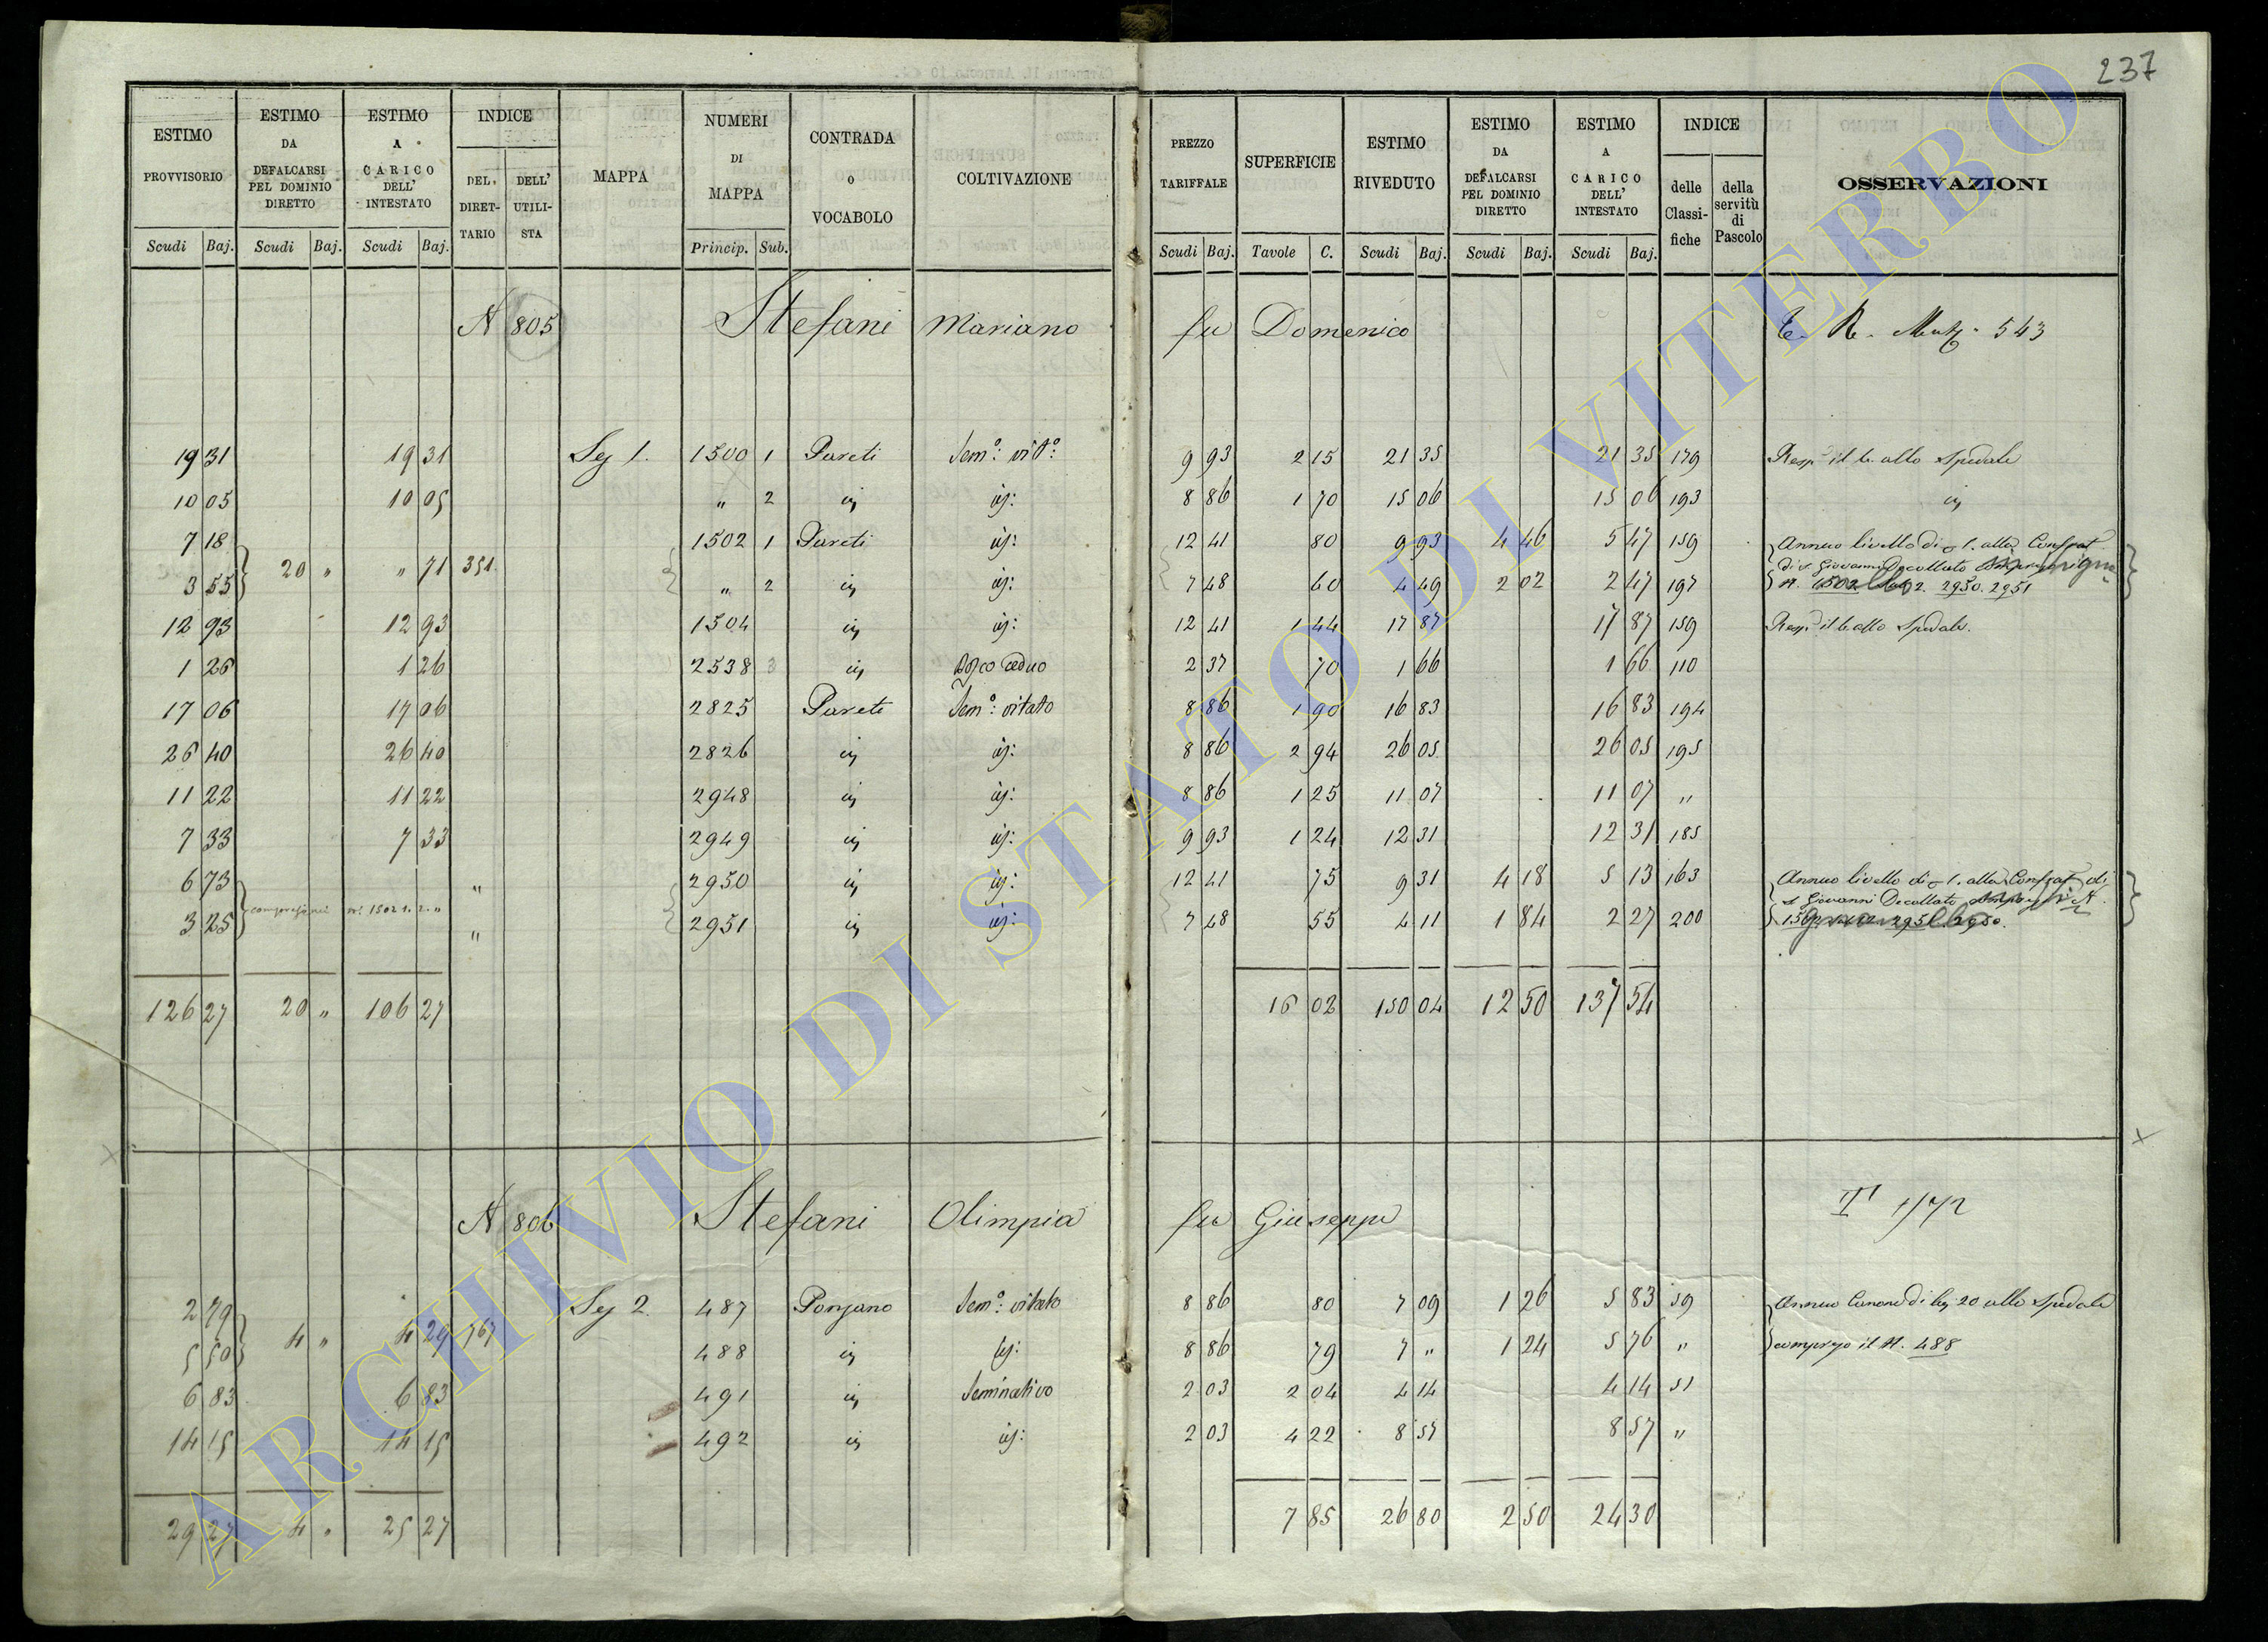 237
ESTIMO PROVVISORIO
ESTIMO DA DEFALCARSI PEL DOMINIO DIRETTO
ESTIMO A CARICO DELL' INTESTATO
INDICE
DEL DIRETTARIO
DELL' UTILISTA
MAPPA
NUMERI DI MAPPA
CONTRADA O VOCABOLO
COLTIVAZIONE
PREZZO TARIFFALE
SUPERFICIE
ESTIMO RIVEDUTO
ESTIMO DA DEFALCARSI PEL DOMINIO DIRETTO
ESTIMO A CARICO DELL' INTESTATO
INDICE
delle Classifiche
della servitù di Pascolo
OSSERVAZIONI
Scudi Baj. Scudi Baj. Scudi Baj. Princip. Sub. Scudi Baj. Tavole C. Scudi Baj. Scudi Baj. Scudi Baj.
N 805 Stefani Mariano fu Domenico 543
19 31 19 31 Sez 1. 1500 1 Pareti Sem.º vit.º 9 93 2 15 21 35 21 35 179 allo Spedale
10 05 10 05 " 2 id. id. 8 86 1 70 15 06 15 06 193 id.
7 18 20 " " 71 351 1502 1 Pareti id. 12 41 80 9 93 4 46 5 47 159 Annuo livello di 1. alla Confrat.
3 55 " 2 id. id. 7 48 60 4 49 2 02 2 47 197 di S. Giovanni Decollato
N. 2950. 2951
12 93 12 93 1504 id. id. 12 41 1 44 17 87 17 87 159 allo Spedale.
1 26 1 26 2538 3 id. Bosco ceduo 2 37 70 1 66 1 66 110
17 06 17 06 2825 Pareti Sem.º vitato 8 86 1 90 16 83 16 83 194
26 40 26 40 2826 id. id. 8 86 2 94 26 05 26 05 195
11 22 11 22 2948 id. id. 8 86 1 25 11 07 11 07 "
7 33 7 33 2949 id. id. 9 93 1 24 12 31 12 31 185
6 73 " 2950 id. id. 12 41 75 9 31 4 18 5 13 163 Annuo livello di 1. alla Confrat. di
3 25 compresi nei nº 1502 1. 2. " " 2951 id. id. 7 48 55 4 11 1 84 2 27 200 S Giovanni Decollato
126 27 20 " 106 27 16 02 150 04 12 50 137 54
N 806 Stefani Olimpia fu Giuseppe
2 79 4 " 4 29 767 Sez 2 487 Ponzano Sem.º vitato 8 86 80 7 09 1 26 5 83 59 Annuo Canone di baj 20 allo Spedale
5 50 488 id. id. 8 86 79 7 " 1 24 5 76 " compreso il N. 488
6 83 6 83 491 id. Seminativo 2 03 2 04 4 14 4 14 51
14 15 14 15 492 id. id. 2 03 4 22 8 57 8 57 "
29 27 4 " 25 27 7 85 26 80 2 50 24 30
ARCHIVIO DI STATO DI VITERBO